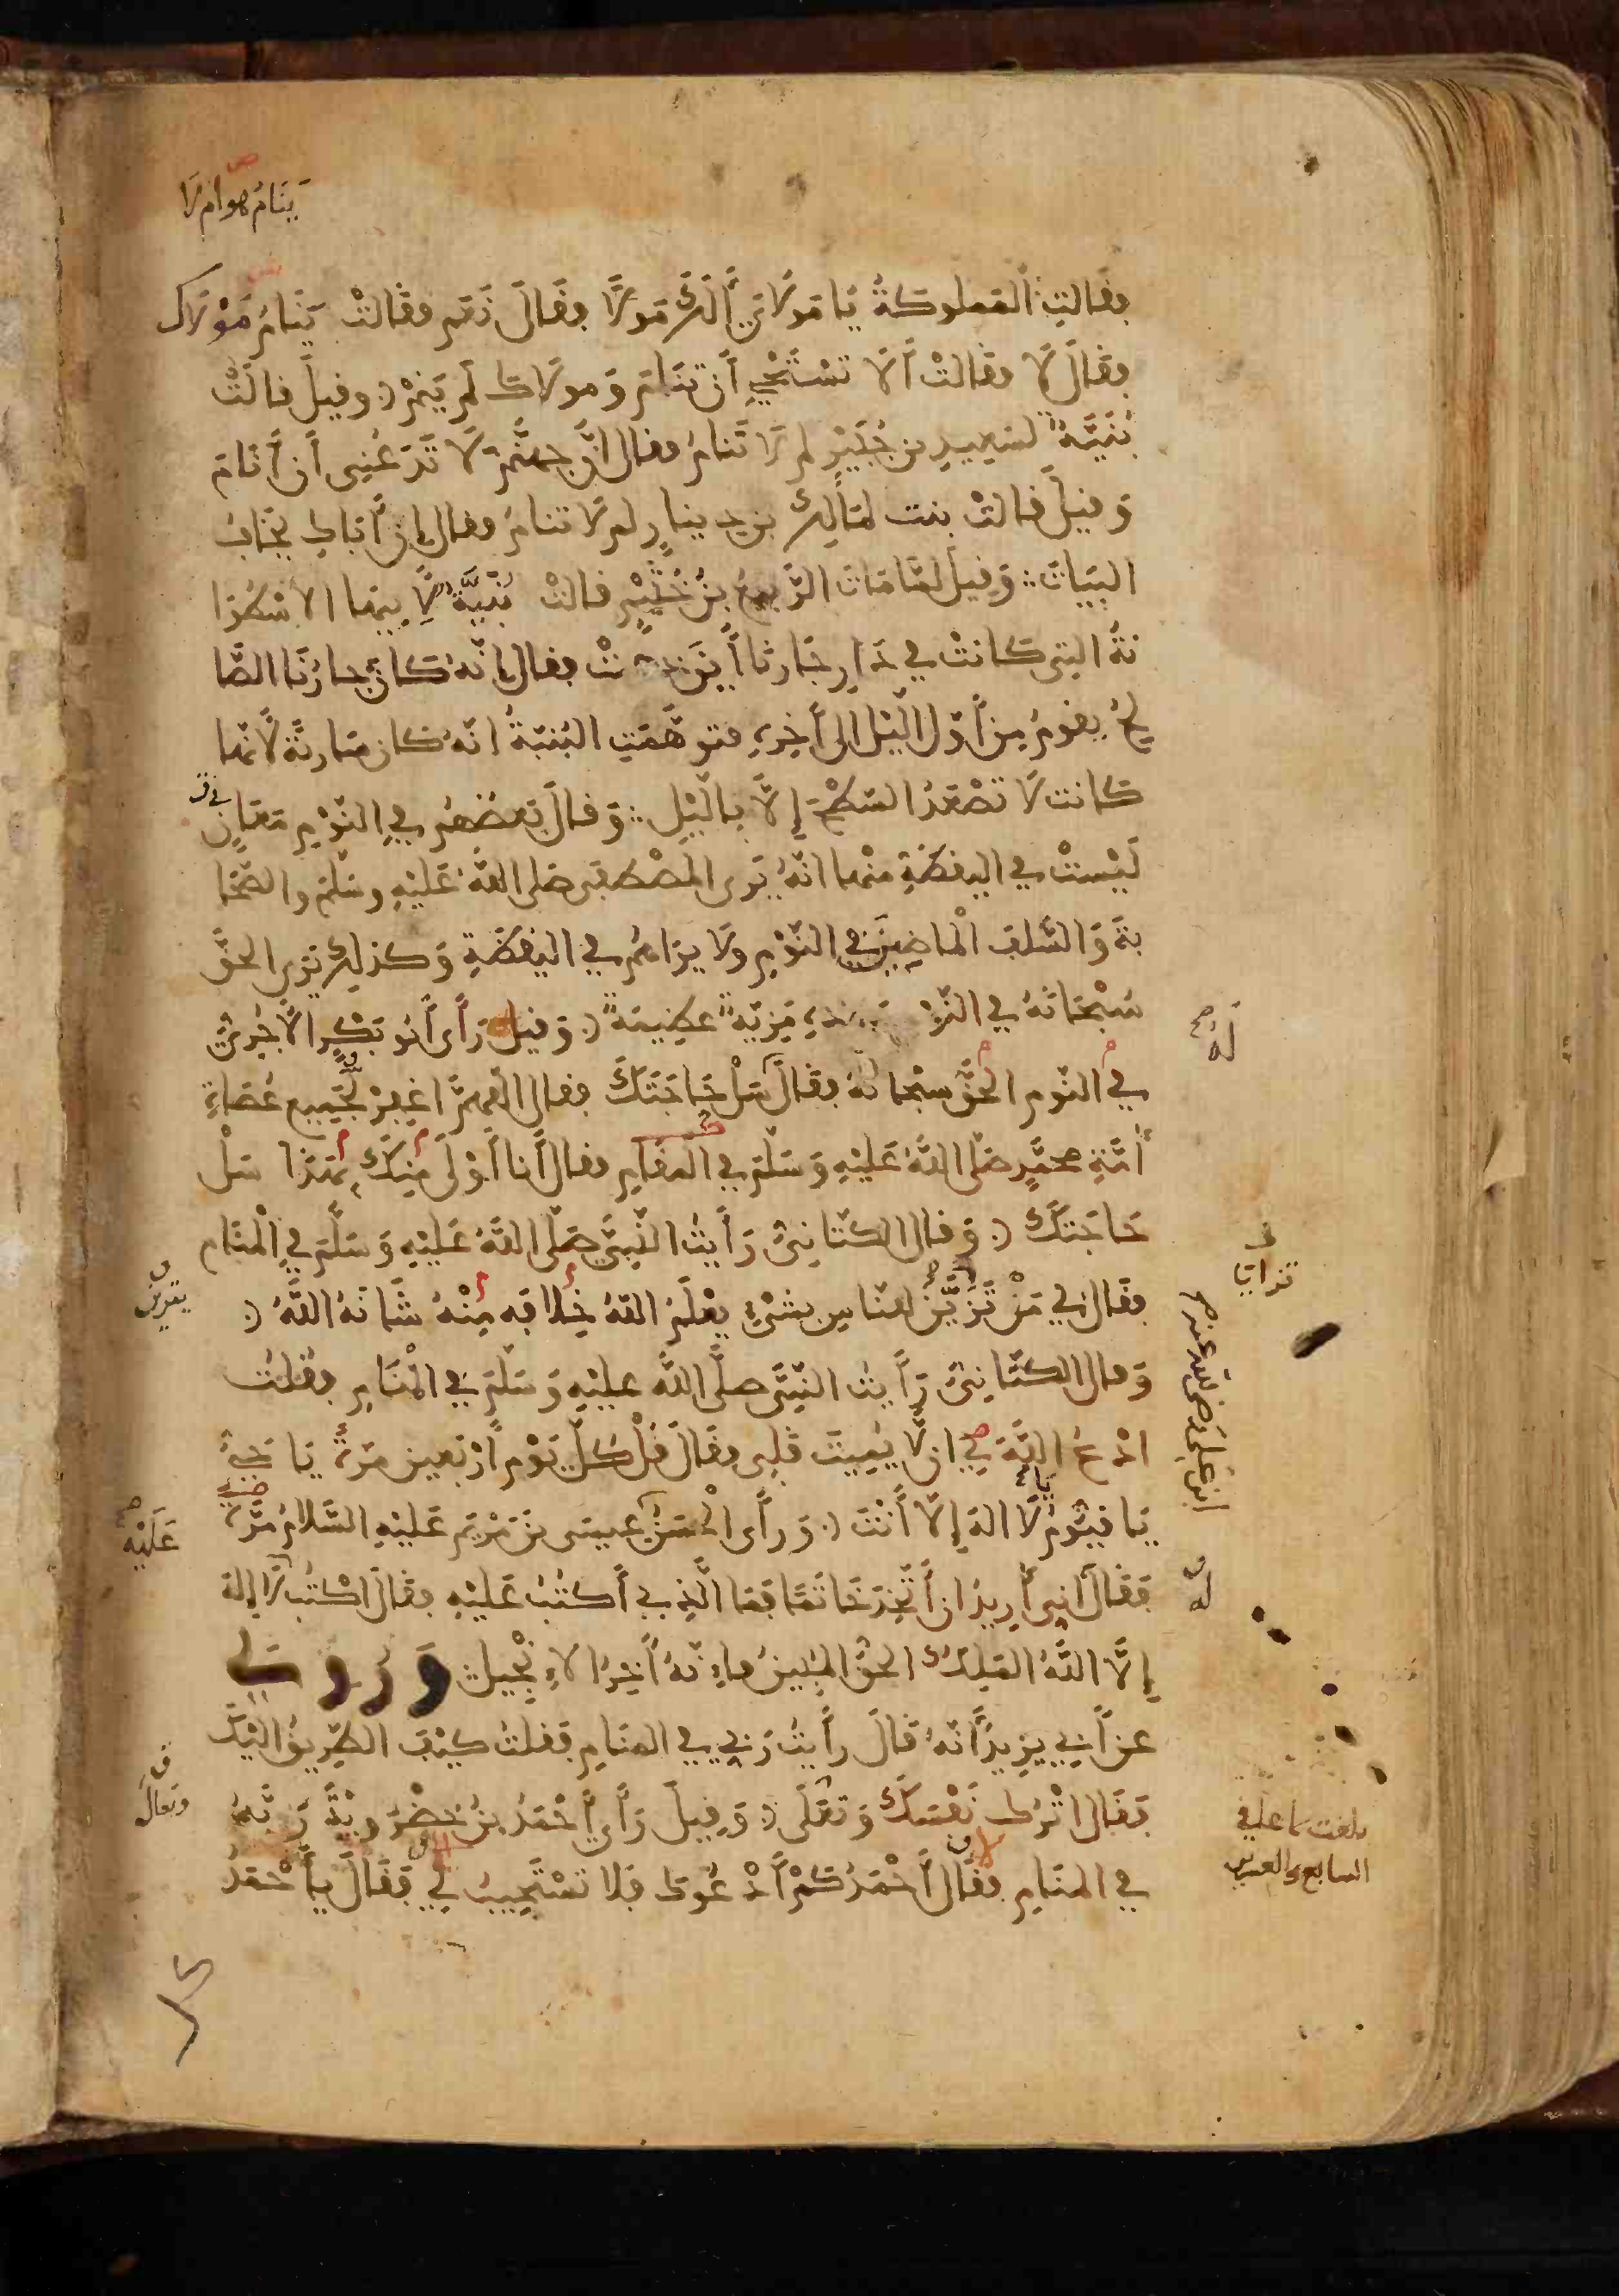 ينام هو ام لا
فقالت المملوكة يا مولاي ألك مولا فقال نعم فقالت ينام مولاك
فقال لا فقالت ألا تستحي أن تنام ومولاك لم ينم وقيل قالت
بنية لسعيد بن جبير لم لا تنام فقال ان جهنم لا تدعني أن أنام
وقيل قالت بنت لمالك بن دينار لم لا تنام فقال إن أباك يخاف
البيات وقيل لما مات الربيع بن خثيم قالت بنية لأبيها الأسطوا
نة التي كانت في دار جارنا أين ذهبت فقال إنه كان جارنا الصا
لح يقوم من أول الليل الى أخره فتوهمت البنية انه كان سارية لأنها
كانت لا تصعد السطح إلا بالليل وقال بعضهم في النوم معان
ليست في اليقظة منها انه يرى المصطفى صلى الله عليه وسلم والصحا
بة والسلف الماضين في النوم ولا يراهم في اليقظة وكذلك يرى الحق
سبحانه في النوم وهذه مزية عظيمة وقيل رأى أبو بكر الأجري
في النوم الحق سبحانه فقال سل حاجتك فقال اللهم اغفر لجميع عصاة
أمة محمد صلى الله عليه وسلم في المقام فقال أنا أولى منك بهذا سل
حاجتك وقال الكتاني رأيت النبي صلى الله عليه وسلم في المنام
فقال لي من تزين للناس بشيء يعلم الله خلافه منه شانه الله
وقال الكتاني رأيت النبي صلى الله عليه وسلم في المنام فقلت
ادع الله لي ان لا يميت قلبي فقال قل كل يوم أربعين مرة يا حي
يا قيوم لا اله إلا أنت ورأى الحسن عيسى بن مريم عليه السلام
فقال اني أريد ان أتخذ خاتما فما الذي أكتب عليه فقال اكتب لا إله
إلا الله الملك الحق المبين فإنه أخر الإنجيل وروي
عن أبي يزيد أنه قال رأيت ربي في المنام فقلت كيف الطريق اليك
فقال اترك نفسك وتعلى وقيل رأى أحمد بن خضرويه ربه
في المنام فقال أحمد كم أدعوك فلا تستجيب لي فقال يا أحمد
له
تراءيا
ابن علي رضي الله عنهم
له
يتزين
عليه
وتعال
بلغت سماعا في
السابع والعشرين